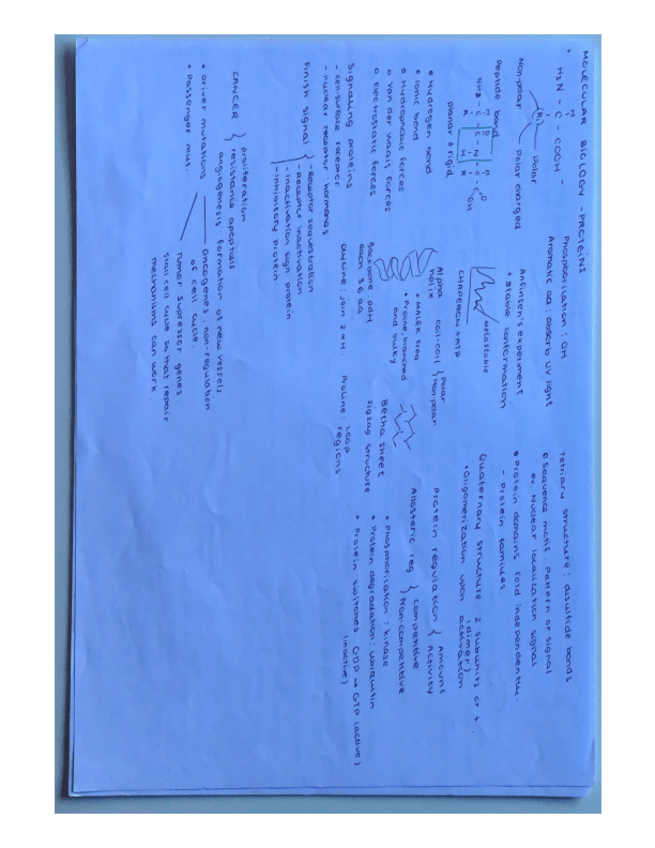 MOLECULAR BIOLOGY - PROTEINS
+ H3N - C - COOH -
H
R
Polar
Non-polar
Polar charged
Peptide bond
planar & rigid
• Hydrogen bond
• Ionic bond
o Hydrophobic forces
o Van der waals forces
o Electrostatic forces
Signaling proteins
- cell-surface receptor
- nuclear receptor : hormones
Finish signal
- Receptor sequestration
- Receptor inactivation
- Inactivation sign. protein
- Inhibitory protein
CANCER
proliferation
resistance apoptosis
angiogenesis formation of new vessels
• Driver mutations
• Passenger mut.
Oncogenes : non-regulation
of cell cycle.
Tumor supresser genes
stall cell cycle so that repair
mechanisms can work.
Phosphorilation : OH
Aromatic aa : absorb UV light
Anfinsen's experiment
+ stable conformation
Metastable
CHAPERON + ATP
Alpha
helix
coil-coil
Polar
Non polar
• MALEK freq
• Proline, branched
and bulky
Backbone : pdH
each 3.6 aa
Betha sheet
zigzag structure
Glycine : join 2 α H.
Proline : Loop
regions
Tetriary structure : disulfide bonds
• Sequence motif pattern or signal
ex. Nuclear localization signal
• Protein domains fold independently.
- Protein families.
Quaternary structure 2 subunits or +.
(dimer)
• Oligomerization upon activation
Protein regulation
Amount
Activity
Allosteric reg
Competitive
Non-competitive
• Phosphorilation : kinase
• Protein degradation : ubiquitin
• Protein switches GDP → GTP (active)
(inactive)